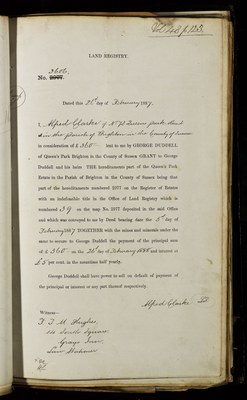 Vol. 248 p. 123.
LAND REGISTRY.
3606.
No. 2977.
Dated this 2d day of February 1887.
I, Alfred Clarke of No 70 Queens Park Road
in the Parish of Brighton in the County of Sussex
in consideration of £ 360 lent to me by GEORGE DUDDELL
of Queen's Park Brighton in the County of Sussex GRANT to George
Duddell and his heirs THE hereditaments part of the Queen's Park
Estate in the Parish of Brighton in the County of Sussex being that
part of the hereditaments numbered 2977 on the Register of Estates
with an indefeasible title in the Office of Land Registry which is
numbered 39 on the map No. 2977 deposited in the said Office
and which was conveyed to me by Deed bearing date the day of
February 1887 TOGETHER with the unions and
same to secure to George Duddell the payment of the principal sum
of £ 360 on the day of February 1888 and interest at
£ 5 per cent. in the meantime half yearly.
George Duddell shall have power to sell on default of payment of
the principal or interest or any part thereof respectively.
Alfred Clarke
Witness—
14 South Square
Grays Inn